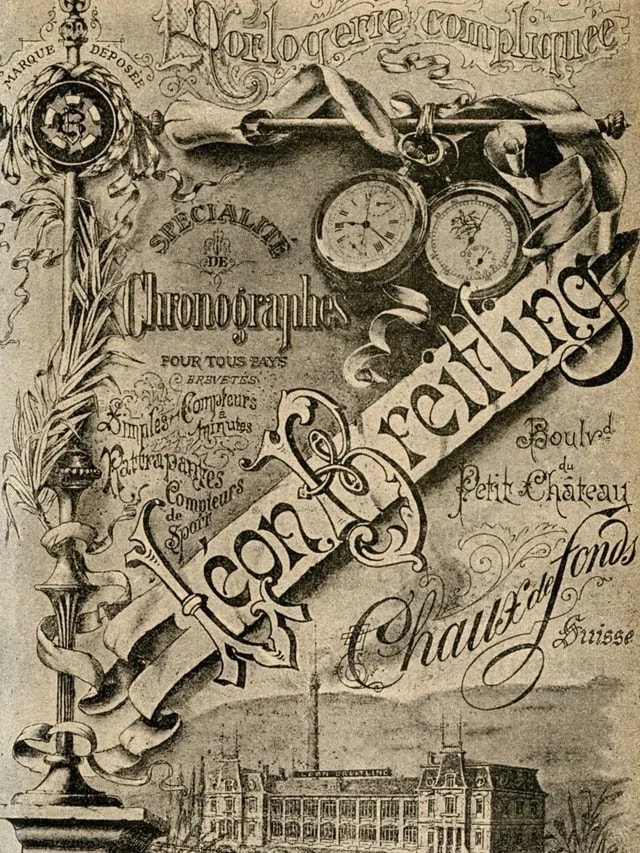 Horlogerie compliquée
MARQUE DEPOSÉE
B
SPÉCIALITÉ
DE
Chronographes
POUR TOUS PAYS
BREVETÉS
Simples-Compteurs
à
minutes
Rattrapantes
Compteurs
de
Sport
Léon Breitling
Boulvd.
du
Petit Château
Chaux de fonds
Suisse
LEON BREITLING